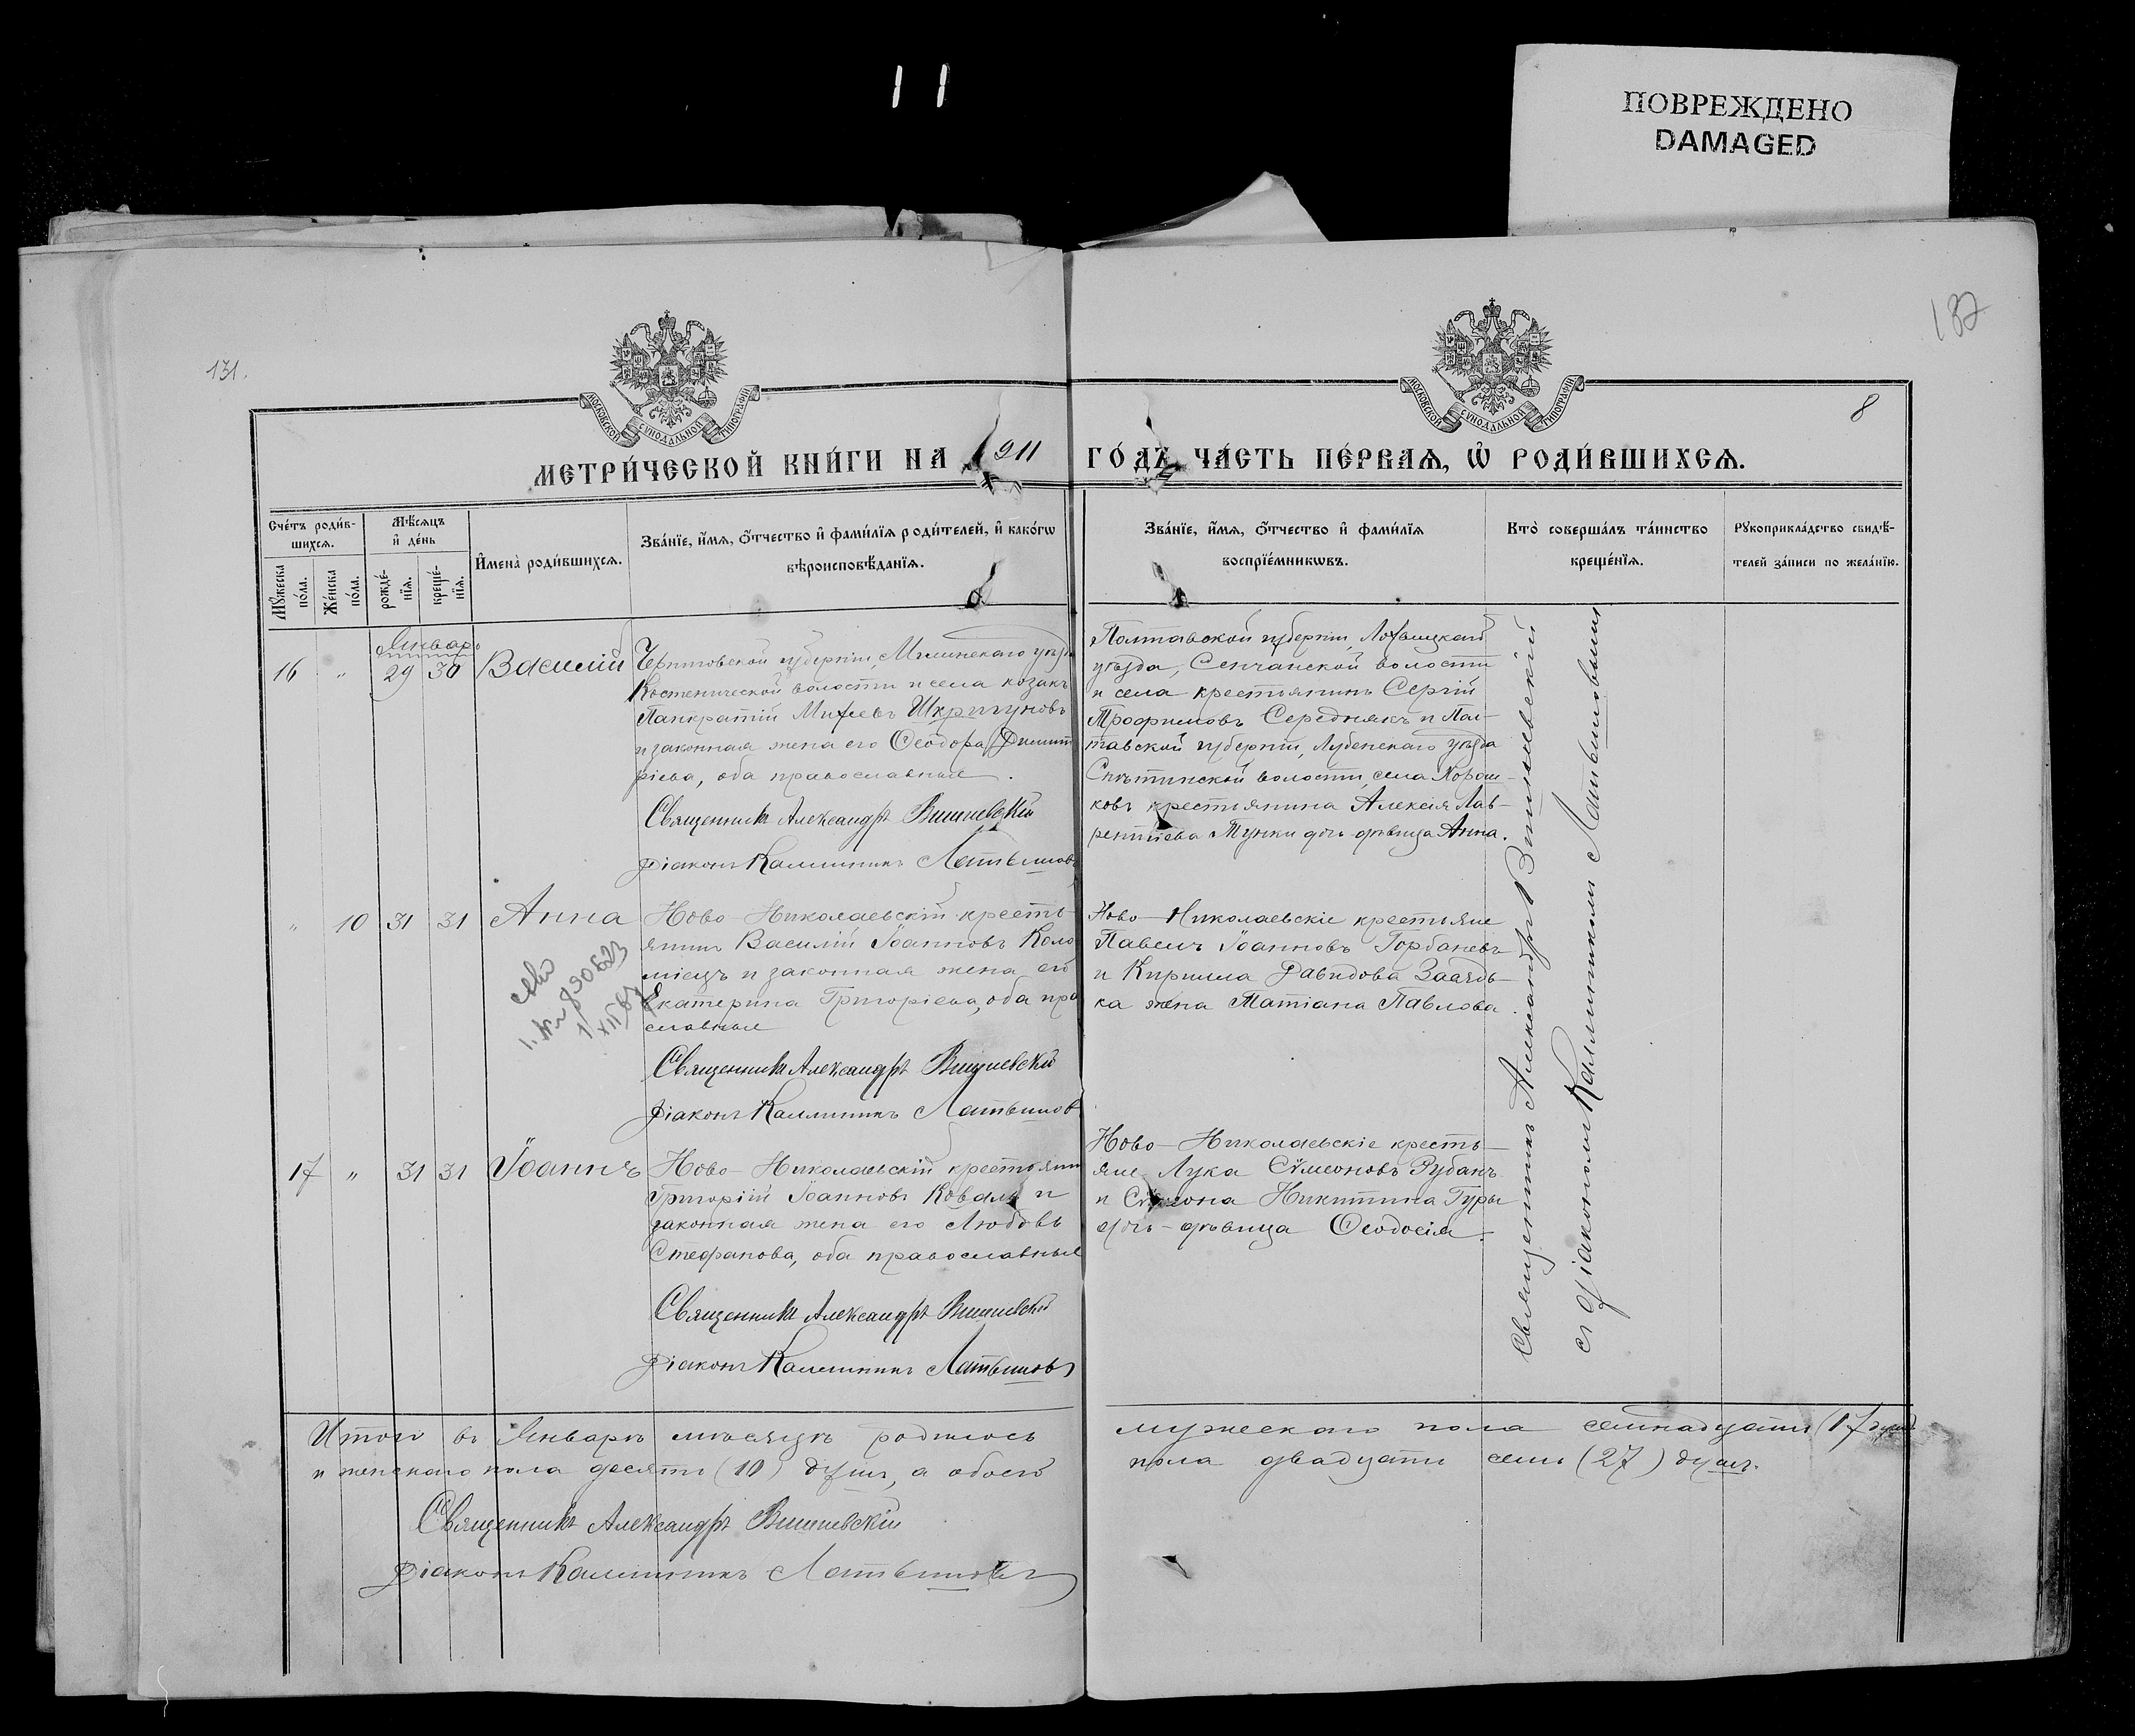 ПОВРЕЖДЕНО
DAMAGED
131.
132
8
МОСКОВСКОЙ СѴНОДАЛЬНОЙ ТИПОГРАФІИ
МОСКОВСКОЙ СѴНОДАЛЬНОЙ ТИПОГРАФІИ
МЕТРИ́ЧЕСКОЙ КНИ́ГИ НА 1911
ГО́ДЪ ЧА́СТЬ ПЕ́РВАѦ, Ѡ РОДИ́ВШИХСѦ.
Сче́тъ роди́в-
шихсѧ.
Мꙋ́жеска по́ла.
Же́нска по́ла.
Мѣ́сѧцъ
и҆ де́нь
рожде́-
нїѧ.
креще́-
нїѧ.
И҆мена̀ роди́вшихсѧ.
Зва́нїе, и҆́мѧ, ѻ҆́тчество и҆ фами́лїѧ роди́телей, и҆ како́гѡ
вѣроисповѣ́данїѧ.
Зва́нїе, и҆́мѧ, ѻ҆́тчество и҆ фами́лїѧ
воспрїе́мникѡвъ.
Кто̀ соверша́лъ та́инство
креще́нїѧ.
Рꙋкоприкла́дство свидѣ́-
телей за́писи по жела́нїю.
Январь
16 " 29 30 Василій
Черниговской губерніи, Мглинскаго уѣзда
Костеничской волости и села козакъ
Панкратій Михеевъ Шкригуновъ
и законная жена его Ѳеодора Димит
ріева, оба православные.
Священникъ Александръ Вишневскій
Діаконъ Каллиникъ Латышовъ
Полтавской губерніи, Лохвицкаго
уѣзда, Сенчанской волости
и села крестьянинъ Сергій
Трофимовъ Середнякъ и Пол-
тавской губерніи, Лубенскаго уѣзда
Снѣтинской волости, села Хорош-
ковъ крестьянина Алексія Лав-
рентіева Тунки дочь-дѣвица Анна.
" 10 31 31 Анна
Ново-Николаевскій кресть-
янинъ Василій Іоанновъ Коло
міецъ и законная жена его
Екатерина Григоріева, оба пра
славные
Священникъ Александръ Вишневскій
Діаконъ Каллиникъ Латышовъ
Ново-Николаевскіе крестьяне
Павелъ Іоанновъ Горбаневъ
и Кирилла Давидова
жена Татіана Павлова.
17 " 31 31 Іоаннъ
Ново-Николаевскій крестьянин
Григорій Іоанновъ Коваль и
законная жена его Любовь
Стефанова, оба православные
Священникъ Александръ Вишневскій
Діаконъ Каллиникъ Латышовъ
Ново-Николаевскіе кресть-
яне Лука Сѵмеоновъ Рубанъ
и Сѵмеона Никитина Гуры
дочь-дѣвица Ѳеодосія.
Священникъ Александръ Вишневскій
съ діакономъ Каллиникомъ Латышовымъ
Итого въ Январѣ мѣсяцѣ родилось
мужескаго пола семнадцать (17) душ
и женскаго пола десять (10) душъ, а обоего
пола двадцать семь (27) душъ.
Священникъ Александръ Вишневскій
Діаконъ Каллиникъ Латышовъ